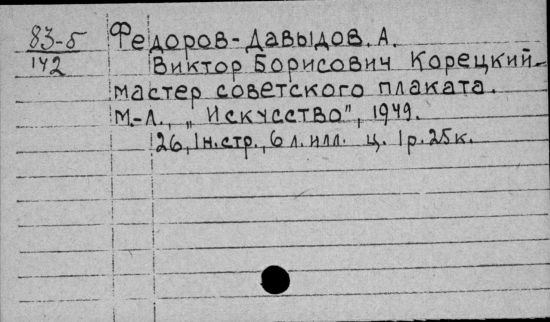 83-5 Федоров-Давыдов, А.
142 Виктор Борисович Корецкий-
мастер советского плаката.
М.-Л., „Искусство", 1949.
26, 1н.стр., 6 л. илл. ц. 1р. 25к.